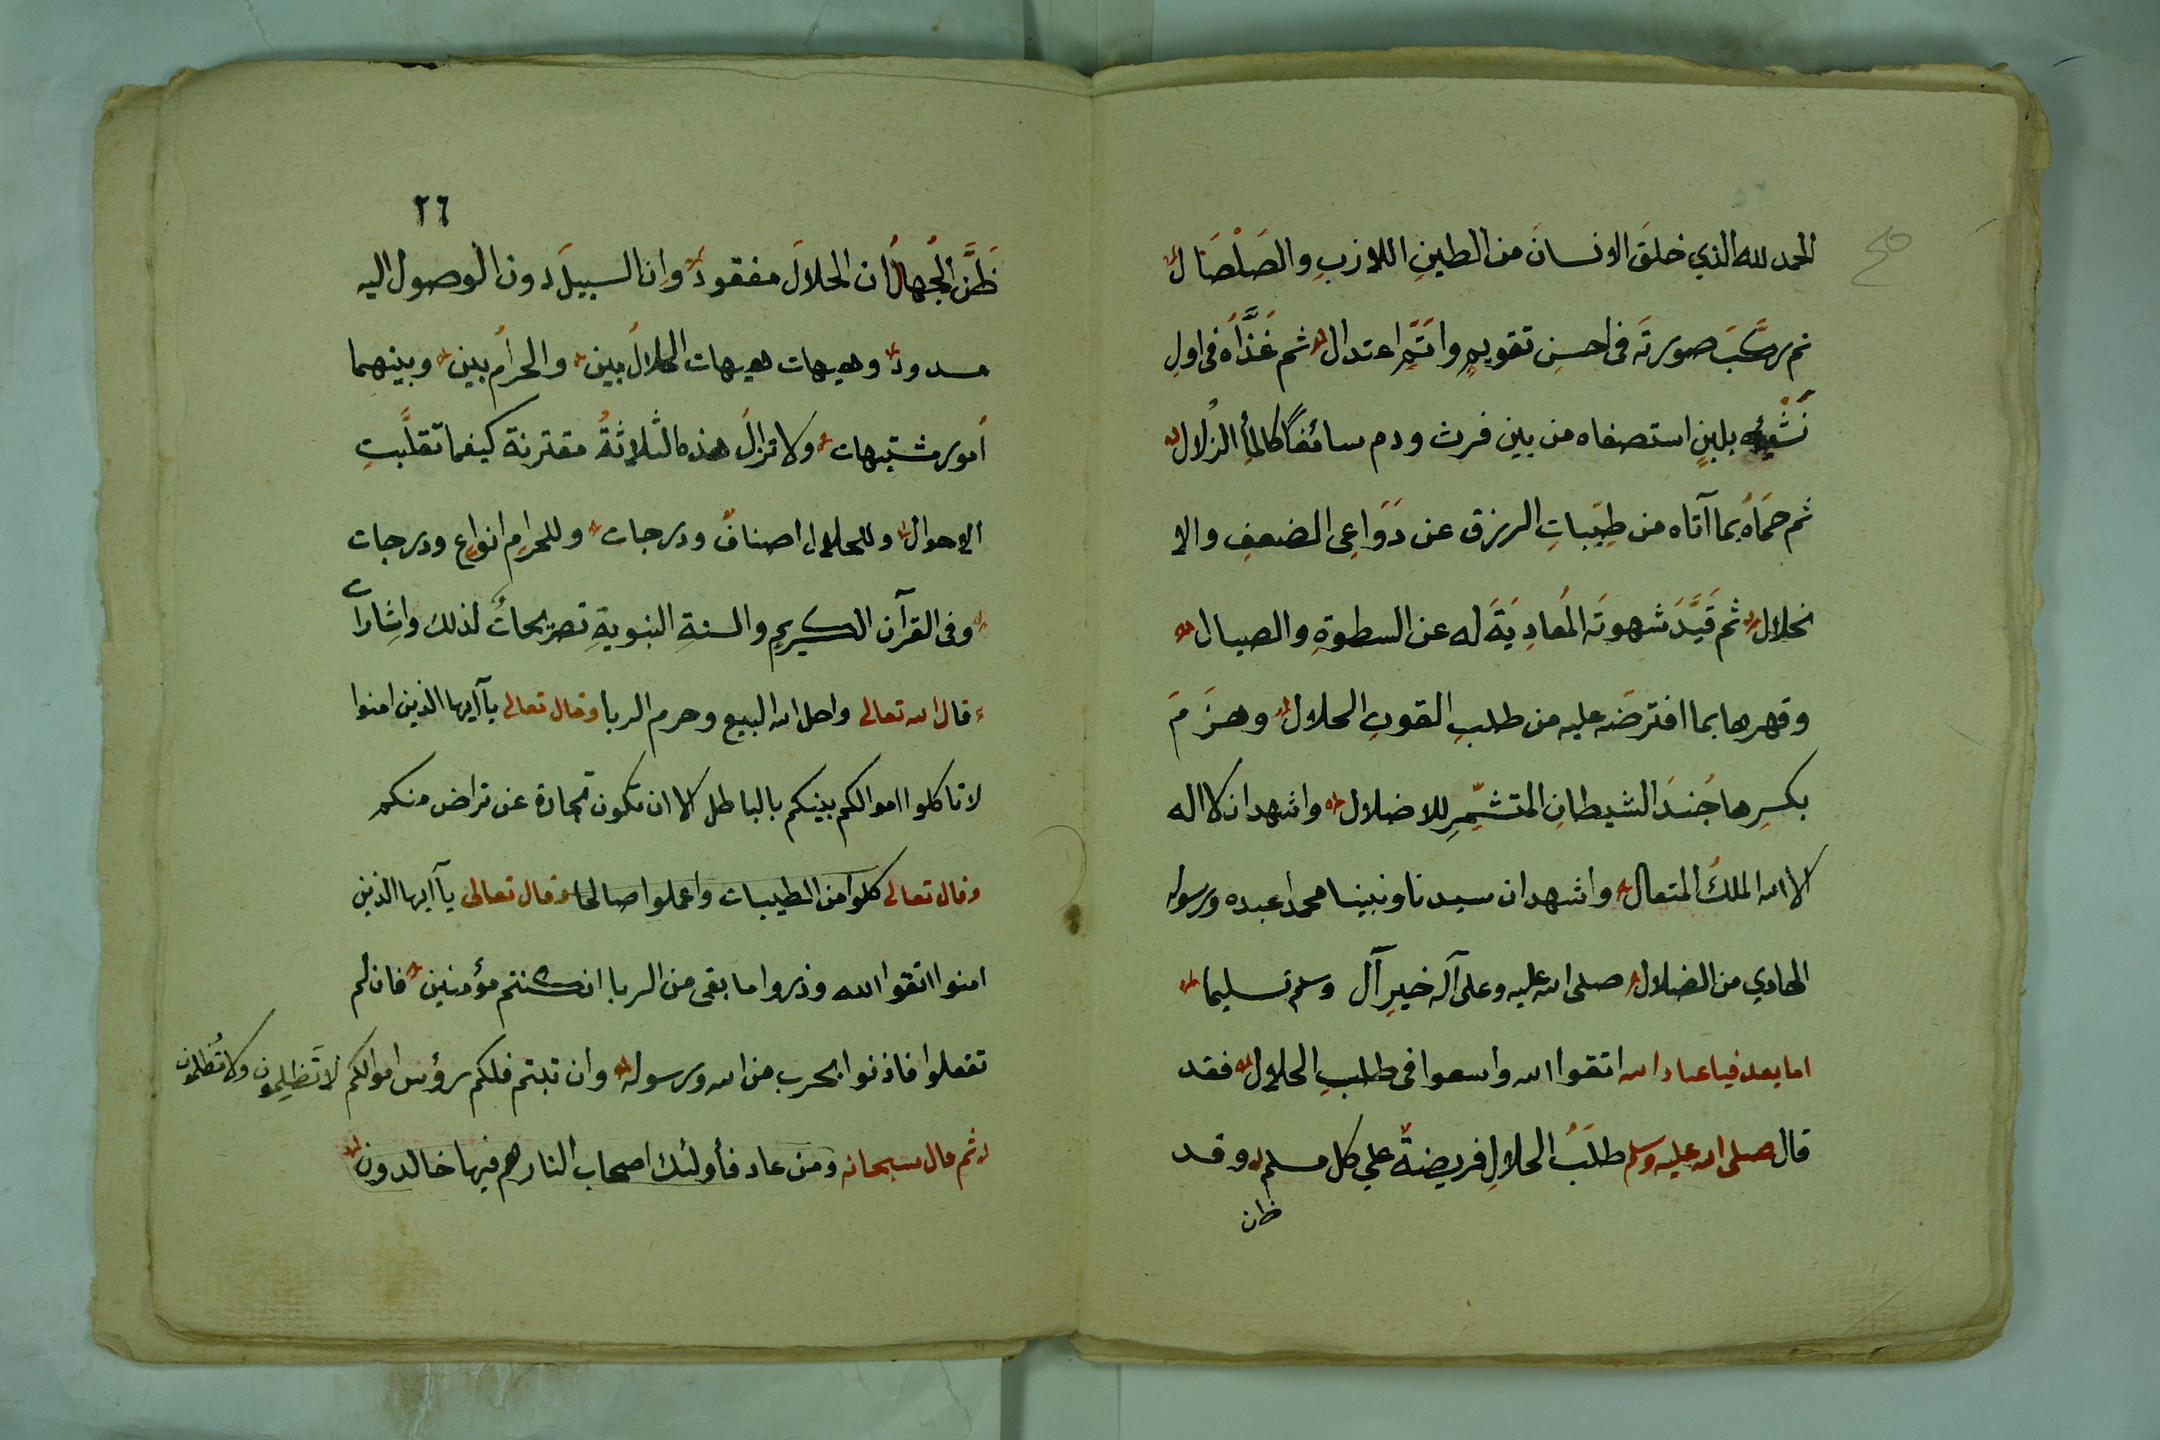 الحمد لله الذي خلقَ الانسانَ من الطينِ اللازبِ والصَلْصَال
ثم ركَّبَ صورتَه فى احسنِ تقويمٍ واتَمِّ اعتدال ثم غَذَّاَه فى اولِ
نَشْئِه بلبنٍ استصفاه من بين فرث ودم سائغًا كالمأِ الزُلال
ثم حَمَاهُ بما آتاه من طيّباتِ الرزق عن دَوَاعِى الضعفِ والا
نحلال ثم قَيَّدَ شهوتَه المُعادِيَةَ له عن السطوةِ والصيال
وقهرها بما افترضَه عليه من طلبِ القوتِ الحلال وهزَمَ
بكسرِها جُندَ الشيطانِ المتشمّرِ للاضلال واشهد ان لا اله
الا الله الملكُ المتعال واشهد ان سيدنا ونبينا محمدا عبده ورسوله
الهادي من الضلال صلى الله عليه وعلى آله خيرِ آل وسلم تسليما
اما بعد فيا عباد الله اتقوا الله واسعوا فى طلبِ الحلال فقد
قال صلى الله عليه وسلم طلَبُ الحلالِ فريضةٌ علي كل مسلم وقد
ظن
٢٦
ظَنَّ الجُهالُ ان الحلالَ مفقودٌ وان السبيلَ دون الوصول اليه
مسدودٌ وهيهات هيهات الحلالُ بين والحرامُ بين وبينهما
اُمور مشتبهات ولا تزالُ هذه الثلاثةُ مقترنة كيفما تقلَّبتِ
الاحوال وللحلال اصنافٌ ودرجات وللحرامِ انواع ودرجات
وفى القرآن الكريمِ والسنةِ النبويةِ تصريحاتٌ لذلك واشارات
قال الله تعالى واحل الله البيع وحرم الربا وقال تعالى يآ ايها الذين امنوا
لا تاكلوا اموالكم بينكم بالباطل الا ان تكون تجارة عن تراض منكم
وقال تعالى كلوا من الطيبات واعملوا صالحا وقال تعالى يآ ايها الذين
امنوا اتقوا الله وذروا ما بقى من الربا ان كنتم مؤمنين فان لم
تفعلوا فاذنوا بحرب من الله ورسوله وان تبتم فلكم رؤس اموالكم لا تَظلِمون ولا تُظلَمون
ثم قال سبحانه ومن عاد فأولئك اصحاب النار هم فيها خالدون